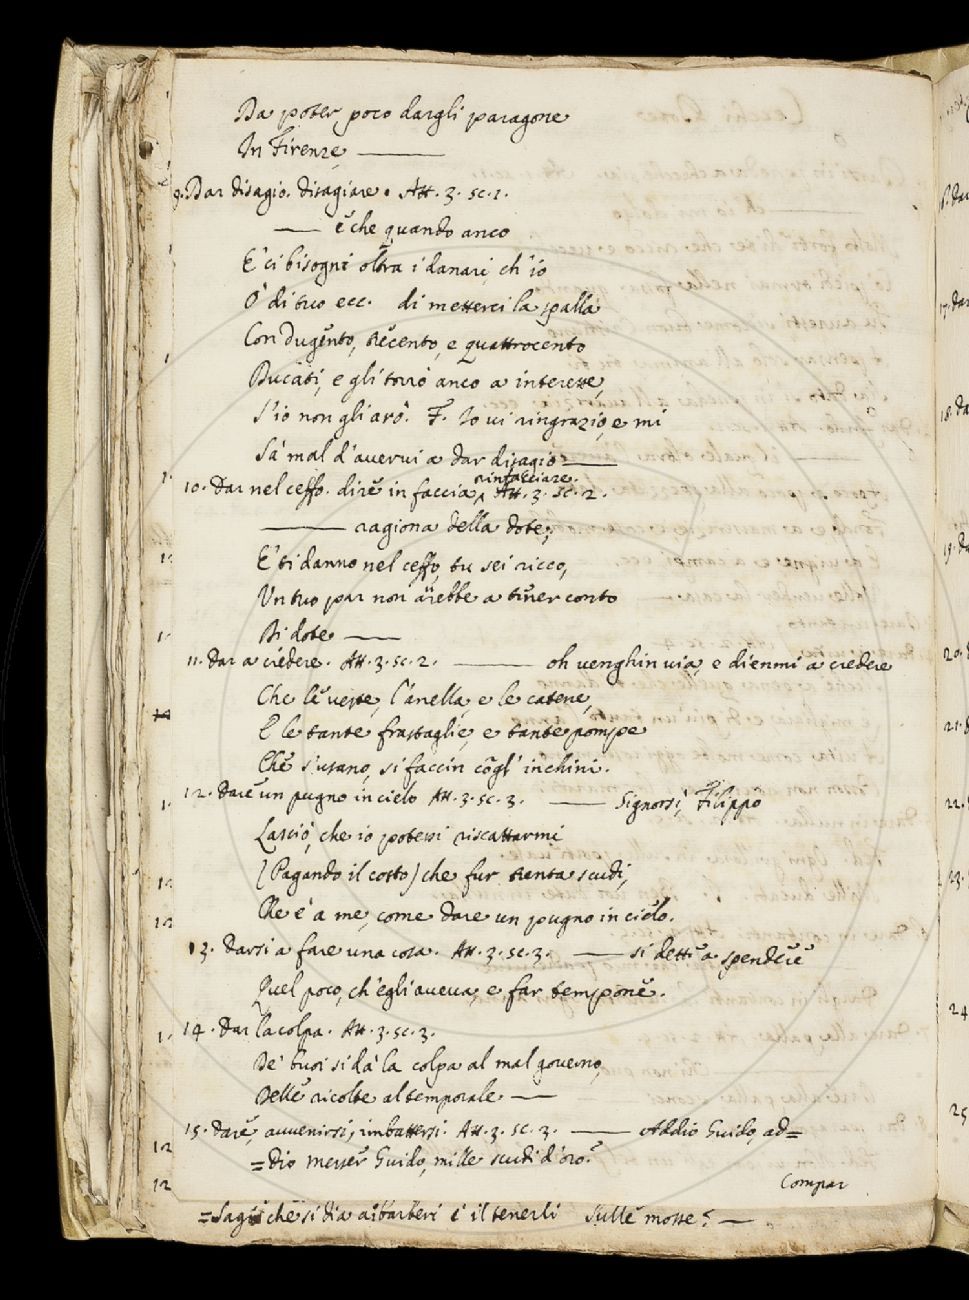 Da poter poco dargli paragone
In Firenze ———
9. Dar disagio. disagiare. Att. 3. sc. 1.
—— è che quando anco
E' ci bisogni oltra i danari, ch'io
O' di tuo ecc. di metterci la spalla
Con Dugento, trecento, e quattrocento
Ducati, e gli torrò anco a interesse,
S'io non gli arò. F. Io vi ringrazio, e mi
Sà mal d'avervi a dar disagio ——
rinfacciare.
10. Dar nel ceffo. dire in faccia, Att. 3. sc. 2.
——— ragiona della dote;
E' ti danno nel ceffo, tu sei ricco,
Un tuo par non arebbe a tener conto
Di dote ——
11. Dar a credere. Att. 3. sc. 2. ——— oh venghin via, e dienmi a credere
Che le veste, l'anella, e le catene,
E le tante frastaglie, e tante pompe
Che s'usano, si faccin cogl' inchini.
12. Dare un pugno in cielo Att. 3. sc. 3. —— Signorsì, Filippo
Lasciò, che io potessi riscattarmi
(Pagando il costo) che fur trenta scudi,
Che è a me, come dare un pugno in cielo.
13. Darsi a fare una cosa. Att. 3. sc. 3. —— si dette a spendere
Quel poco, ch'egli aveva, e far tempone.
14. Dar la colpa. Att. 3. sc. 3.
De' buoi si dà la colpa al mal governo,
Delle ricolte al temporale ——
15. Dare, avvenirsi, imbattersi. Att. 3. sc. 3. —— Addio Guido, ad=
=dio messer Guido, mille scudi d'oro?
Compar
che si dia a i barberi è il tenerli sulle mosse? ——